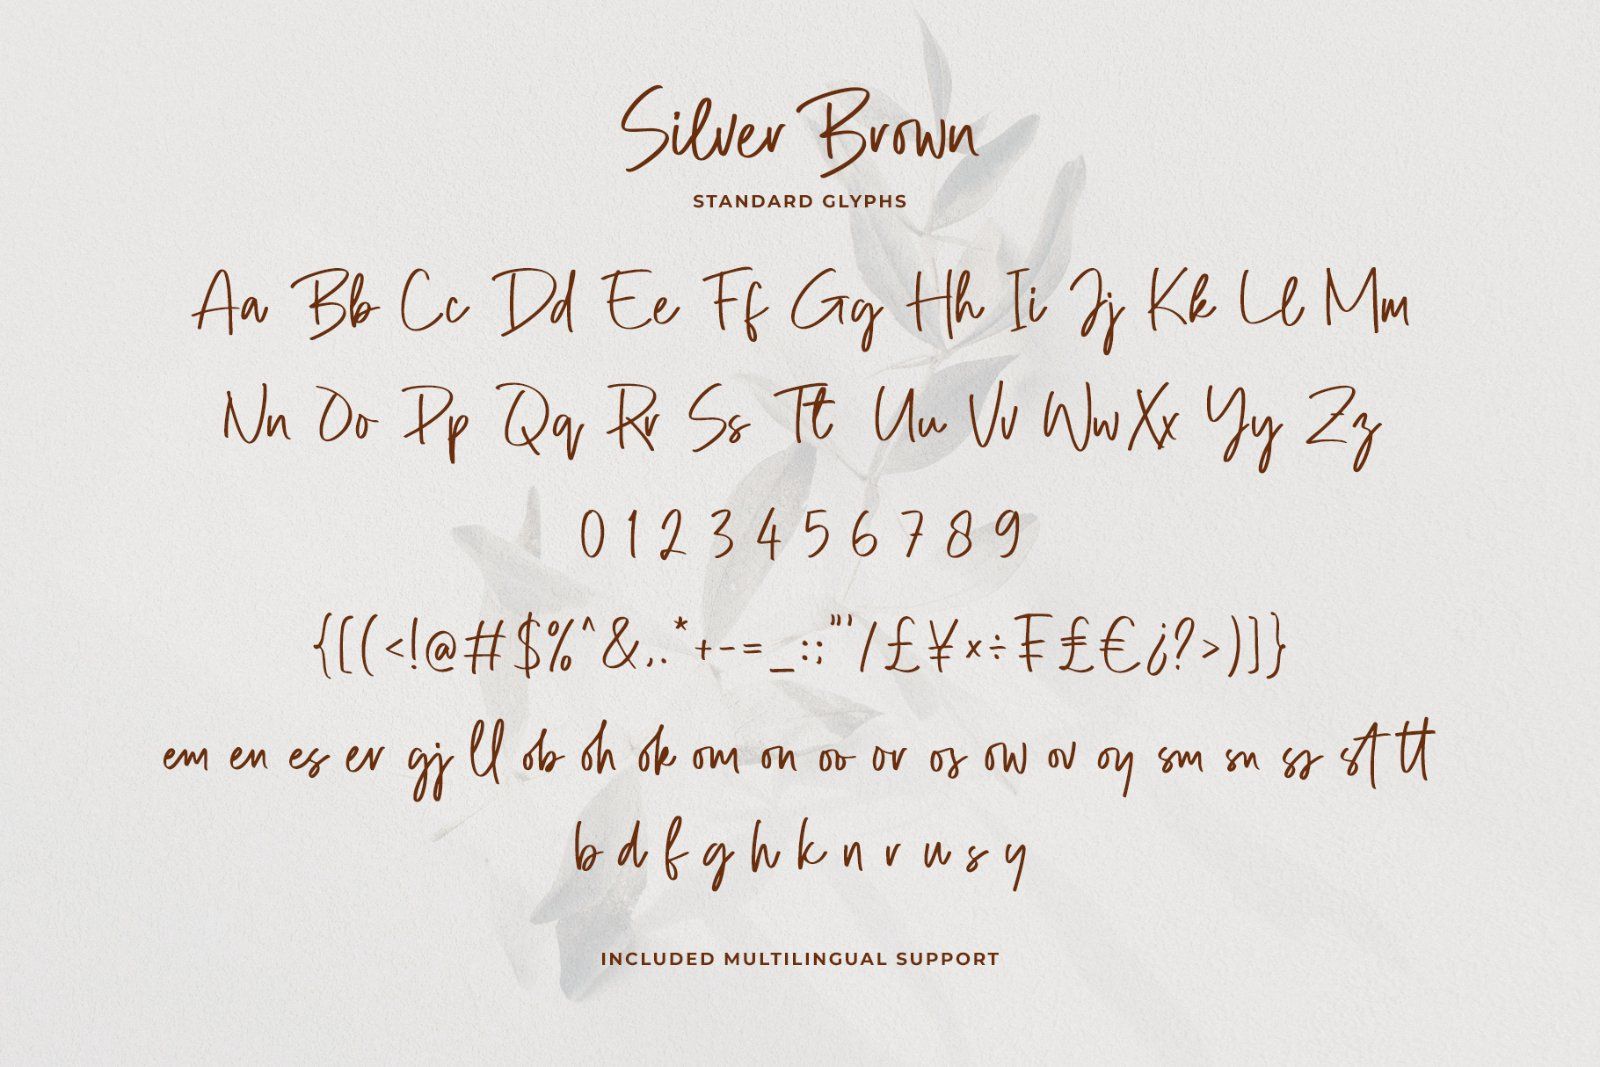 Silver Brown
STANDARD GLYPHS
Aa Bb Cc Dd Ee Ff Gg Hh Ii Jj Kk Ll Mm
Nn Oo Pp Qq Rr Ss Tt Uu Vv Ww Xx Yy Zz
0 1 2 3 4 5 6 7 8 9
{[(<!@#$%^&,.*+-=_:;"'/£¥×÷₣₤€¿?>)]}
em en es er gj ll ob oh ok om on oo or os ow ov oy sm sn ss st tt
b d f g h k n r u s y
INCLUDED MULTILINGUAL SUPPORT